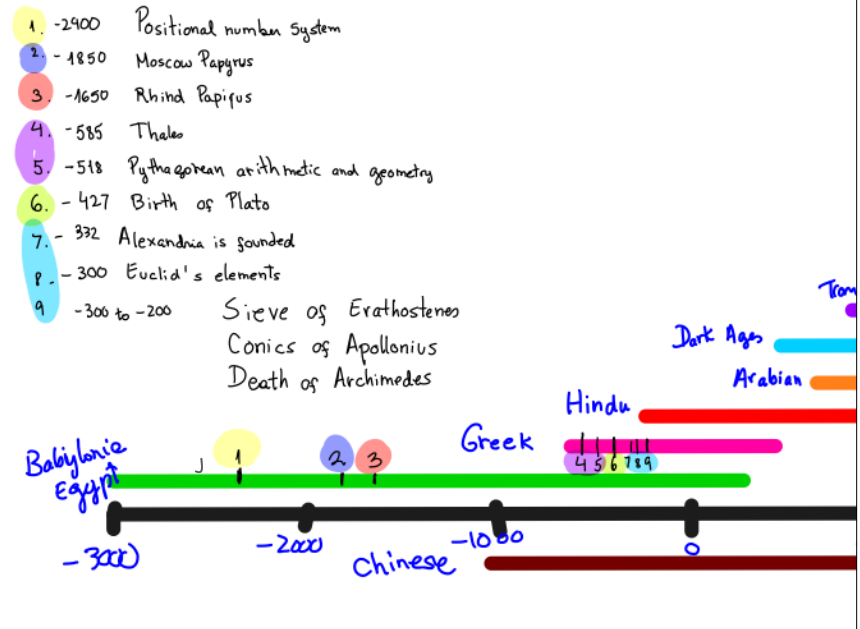 1. -2400 Positional number system
2. -1850 Moscow Papyrus
3. -1650 Rhind Papirus
4. -585 Thales
5. -518 Pythagorean arithmetic and geometry
6. -427 Birth of Plato
7. -332 Alexandria is founded
8. -300 Euclid's elements
9 -300 to -200 Sieve of Erathostenes
Conics of Apollonius
Death of Archimedes
Tran
Dark Ages
Arabian
Hindu
Greek
Babylonia
Egypt
1 2 3
4 5 6 7 8 9
-3000 -2000 -1000 0
Chinese